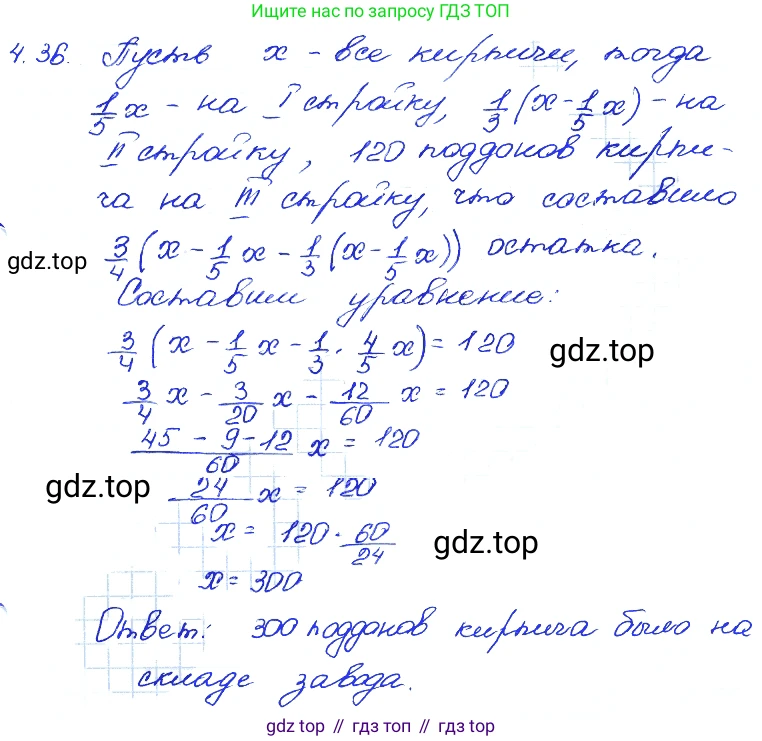 Ищите нас по запросу ГДЗ ТОП
4.36. Пусть x - все кирпичи, тогда
1/5 x - на I стройку, 1/3 (x - 1/5 x) - на
II стройку, 120 поддонов кирпи-
ча на III стройку, что составило
gdz.top 3/4 (x - 1/5 x - 1/3 (x - 1/5 x)) остатка.
Составим уравнение:
3/4 (x - 1/5 x - 1/3 · 4/5 x) = 120 gdz.top
3/4 x - 3/20 x - 12/60 x = 120
45 - 9 - 12/60 x = 120
gdz.top 24/60 x = 120
x = 120 · 60/24 gdz.top
x = 300
Ответ: 300 поддонов кирпича было на
складе завода.
gdz top // гдз топ // гдз top